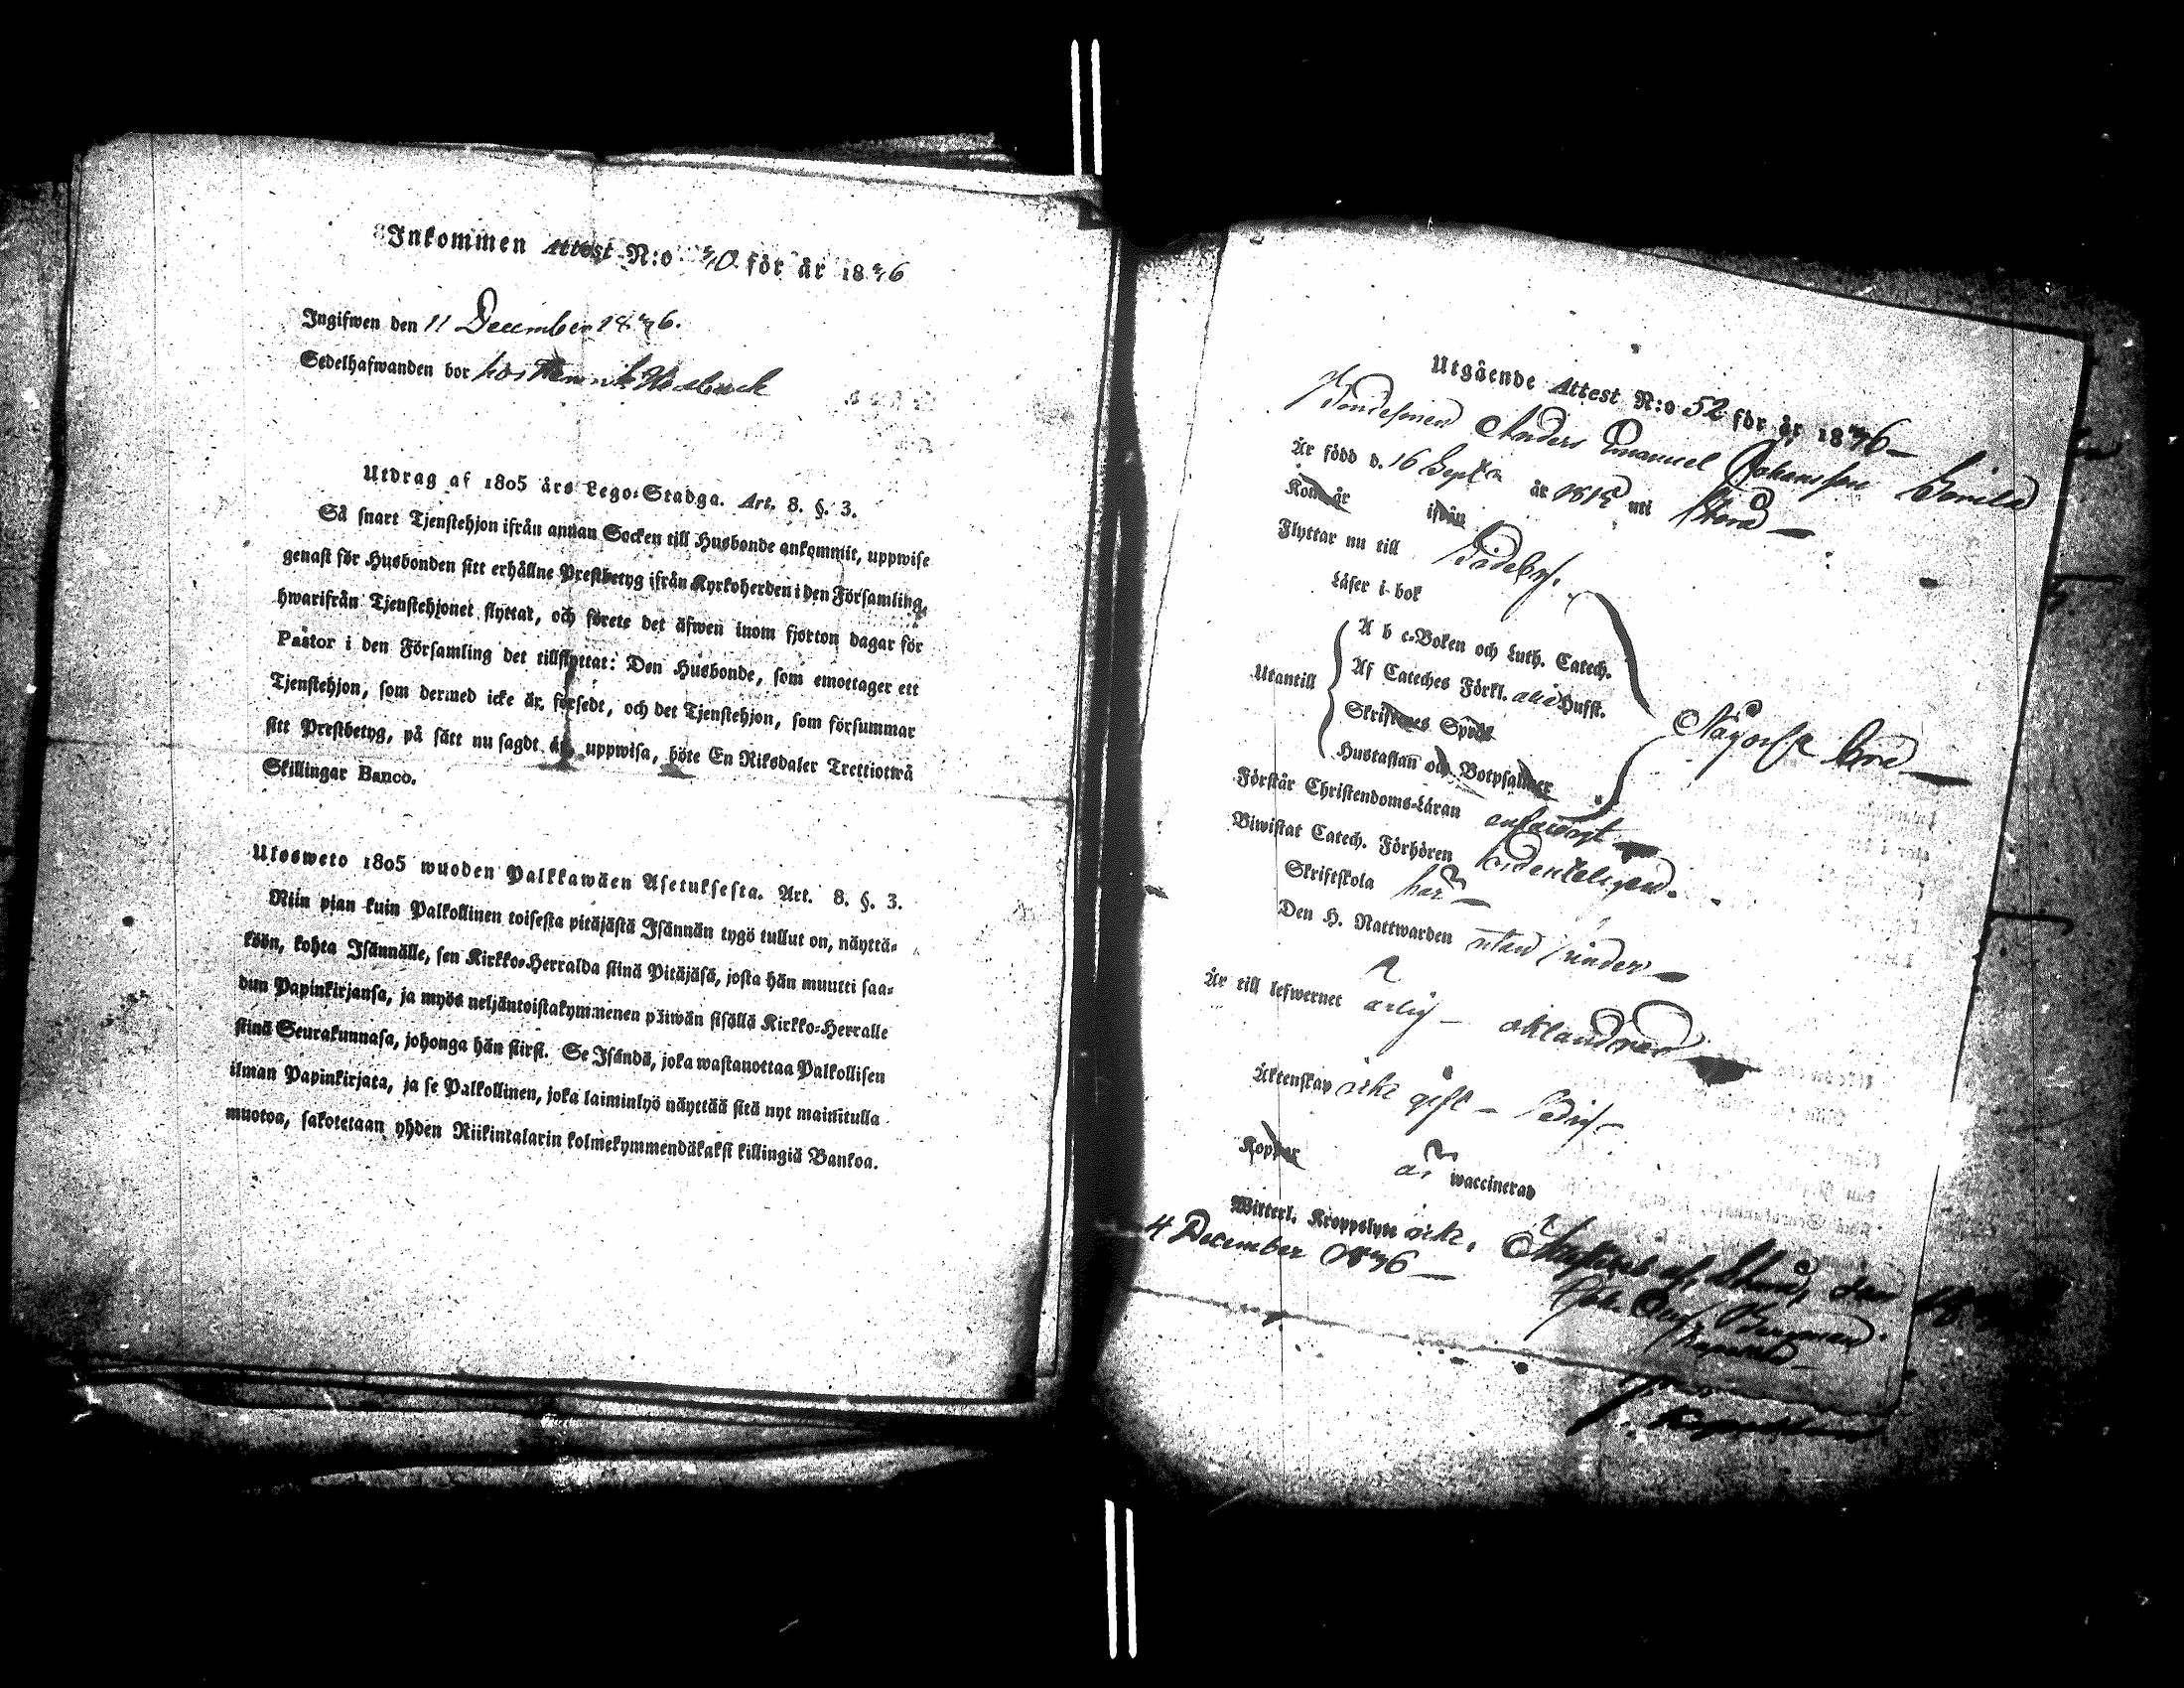 Inkommen Attest N:o 40 för år 1846
Ingifwen den 11 December 1846.
Sedelhafwanden bor hos
Utdrag af 1805 års Lego-Stadga. Art. 8. §. 3.
Så snart Tjenstehjon ifrån annan Socken till Husbonde ankommit, uppwise
genast för Husbonden sitt erhållne Prestbetyg ifrån Kyrkoherden i den Församling,
hwarifrån Tjenstehjonet flyttat, och förete det äfwen inom fjorton dagar för
Pastor i den Församling det tillflyttat: Den Husbonde, som emottager ett
Tjenstehjon, som dermed icke är försedt, och det Tjenstehjon, som försummar
sitt Prestbetyg, på sätt nu sagdt är, uppwisa, böte En Riksdaler Trettiotwå
Skillingar Banco.
Ulosweto 1805 wuoden Palkkawäen Asetuksesta. Art. 8. §. 3.
Niin pian kuin Palkollinen toisesta pitäjästä Isännän tygö tullut on, näyttä-
köön, kohta Isännälle, sen Kirkko-Herralda siinä Pitäjäsä, josta hän muutti saa-
dun Papinkirjansa, ja myös neljäntoistakymmenen päiwän sisällä Kirkko-Herralle
siinä Seurakunnasa, johonga hän siirsi. Se Isändä, joka wastanottaa Palkollisen
ilman Papinkirjata, ja se Palkollinen, joka laiminlyö näyttää sitä nyt mainitulla
muotoa, sakotetaan yhden Riikintalarin kolmekymmendäkaksi killingiä Bankoa.
Utgående Attest N:o 52 för år 1846
Bondesonen Anders Emanuel Johansson
Är född d. 16 Sept. år uti
Kom år ifrån
Flyttar nu till Sideby.
Läser i bok
A b c-Boken och Luth. Catech.
Utantill Af Cateches Förkl. Hufst.
Skriftenes Språk
Hustaflan och Botpsalmer
Förstår Christendoms-Läran
Biwistat Catech. Förhören ordenteligen.
Skriftskola har
Den H. Nattwarden utan hinder
Är till lefwernet ärlig oklandrad
Äktenskap icke gift ledig
Koppor är waccinerad
Witterl. Kroppslyte icke.
4 December 1846